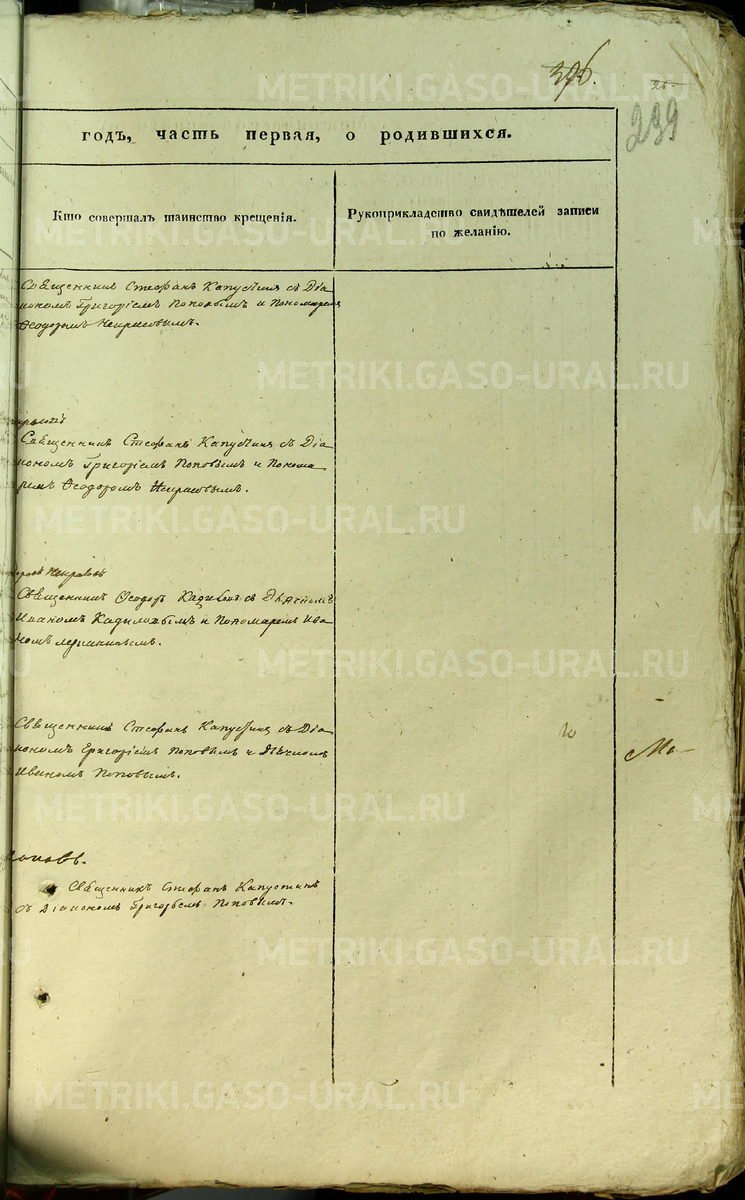 396.
239
годъ, часть первая, о родившихся.
Кто совершалъ таинство крещенія.
Рукоприкладство свидѣтелей записи
по желанію.
Священникъ Стефанъ Капустинъ съ Діа
кономъ Григоріемъ Поповымъ и Пономаремъ
Ѳеодоромъ Некрасовымъ.
Священникъ Стефанъ Капустинъ съ Діа
кономъ Григоріемъ Поповымъ и Понома
ремъ Ѳеодоромъ Некрасовымъ.
Некрасовъ
Священникъ Ѳеодоръ Кадиловъ съ Дьячкомъ
Иваномъ Кадиловымъ и Пономаремъ Ива
номъ
Священникъ Стефанъ Капустинъ съ Діа
кономъ Григоріемъ Поповымъ и Дьячкомъ
Иваномъ Поповымъ.
Ма-
Поповъ.
Священникъ Стефанъ Капустинъ
съ Діакономъ Григорьемъ Поповымъ.
METRIKI.GASO-URAL.RU